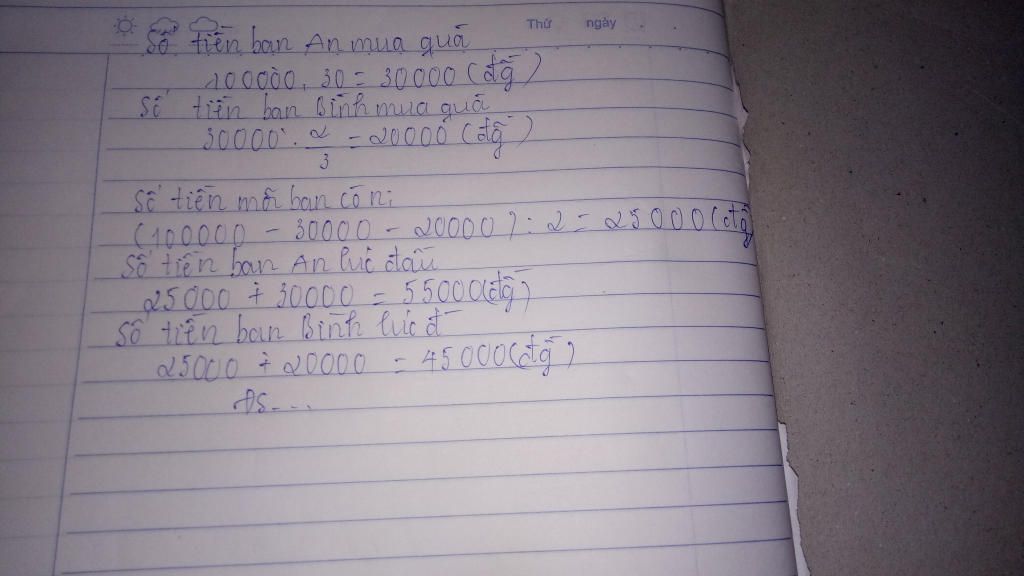 Thứ ngày
Số tiền bạn An mua quà
100000 . 30 = 30000 (đg)
Số tiền bạn Bình mua quà
30000 . 2/3 = 20000 (đg)
Số tiền mỗi bạn còn:
(100000 - 30000 - 20000) : 2 = 25000 (đg)
Số tiền bạn An lúc đầu
25000 + 30000 = 55000 (đg)
Số tiền bạn Bình lúc đ
25000 + 20000 = 45000 (đg)
ĐS....